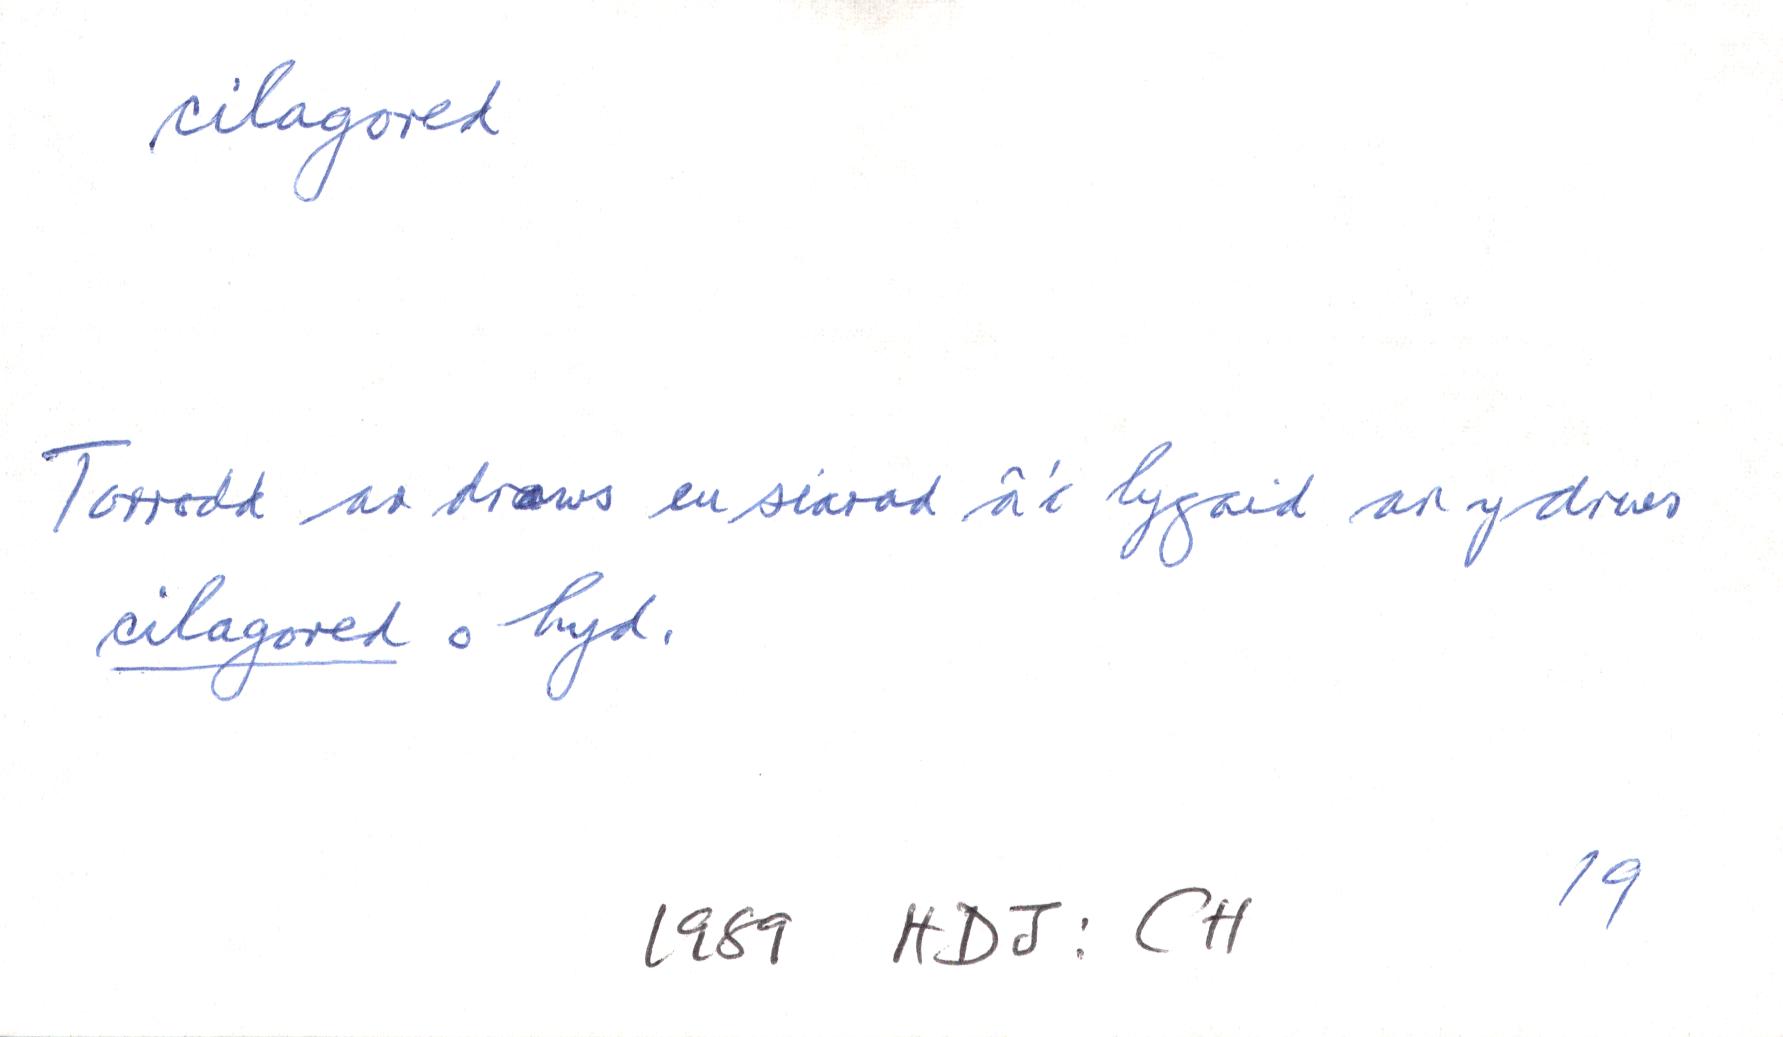 cilagored
Torrodd ar draws eu siarad â'i lygaid ar y drws
cilagored o hyd.
19
1989 HDJ: CH